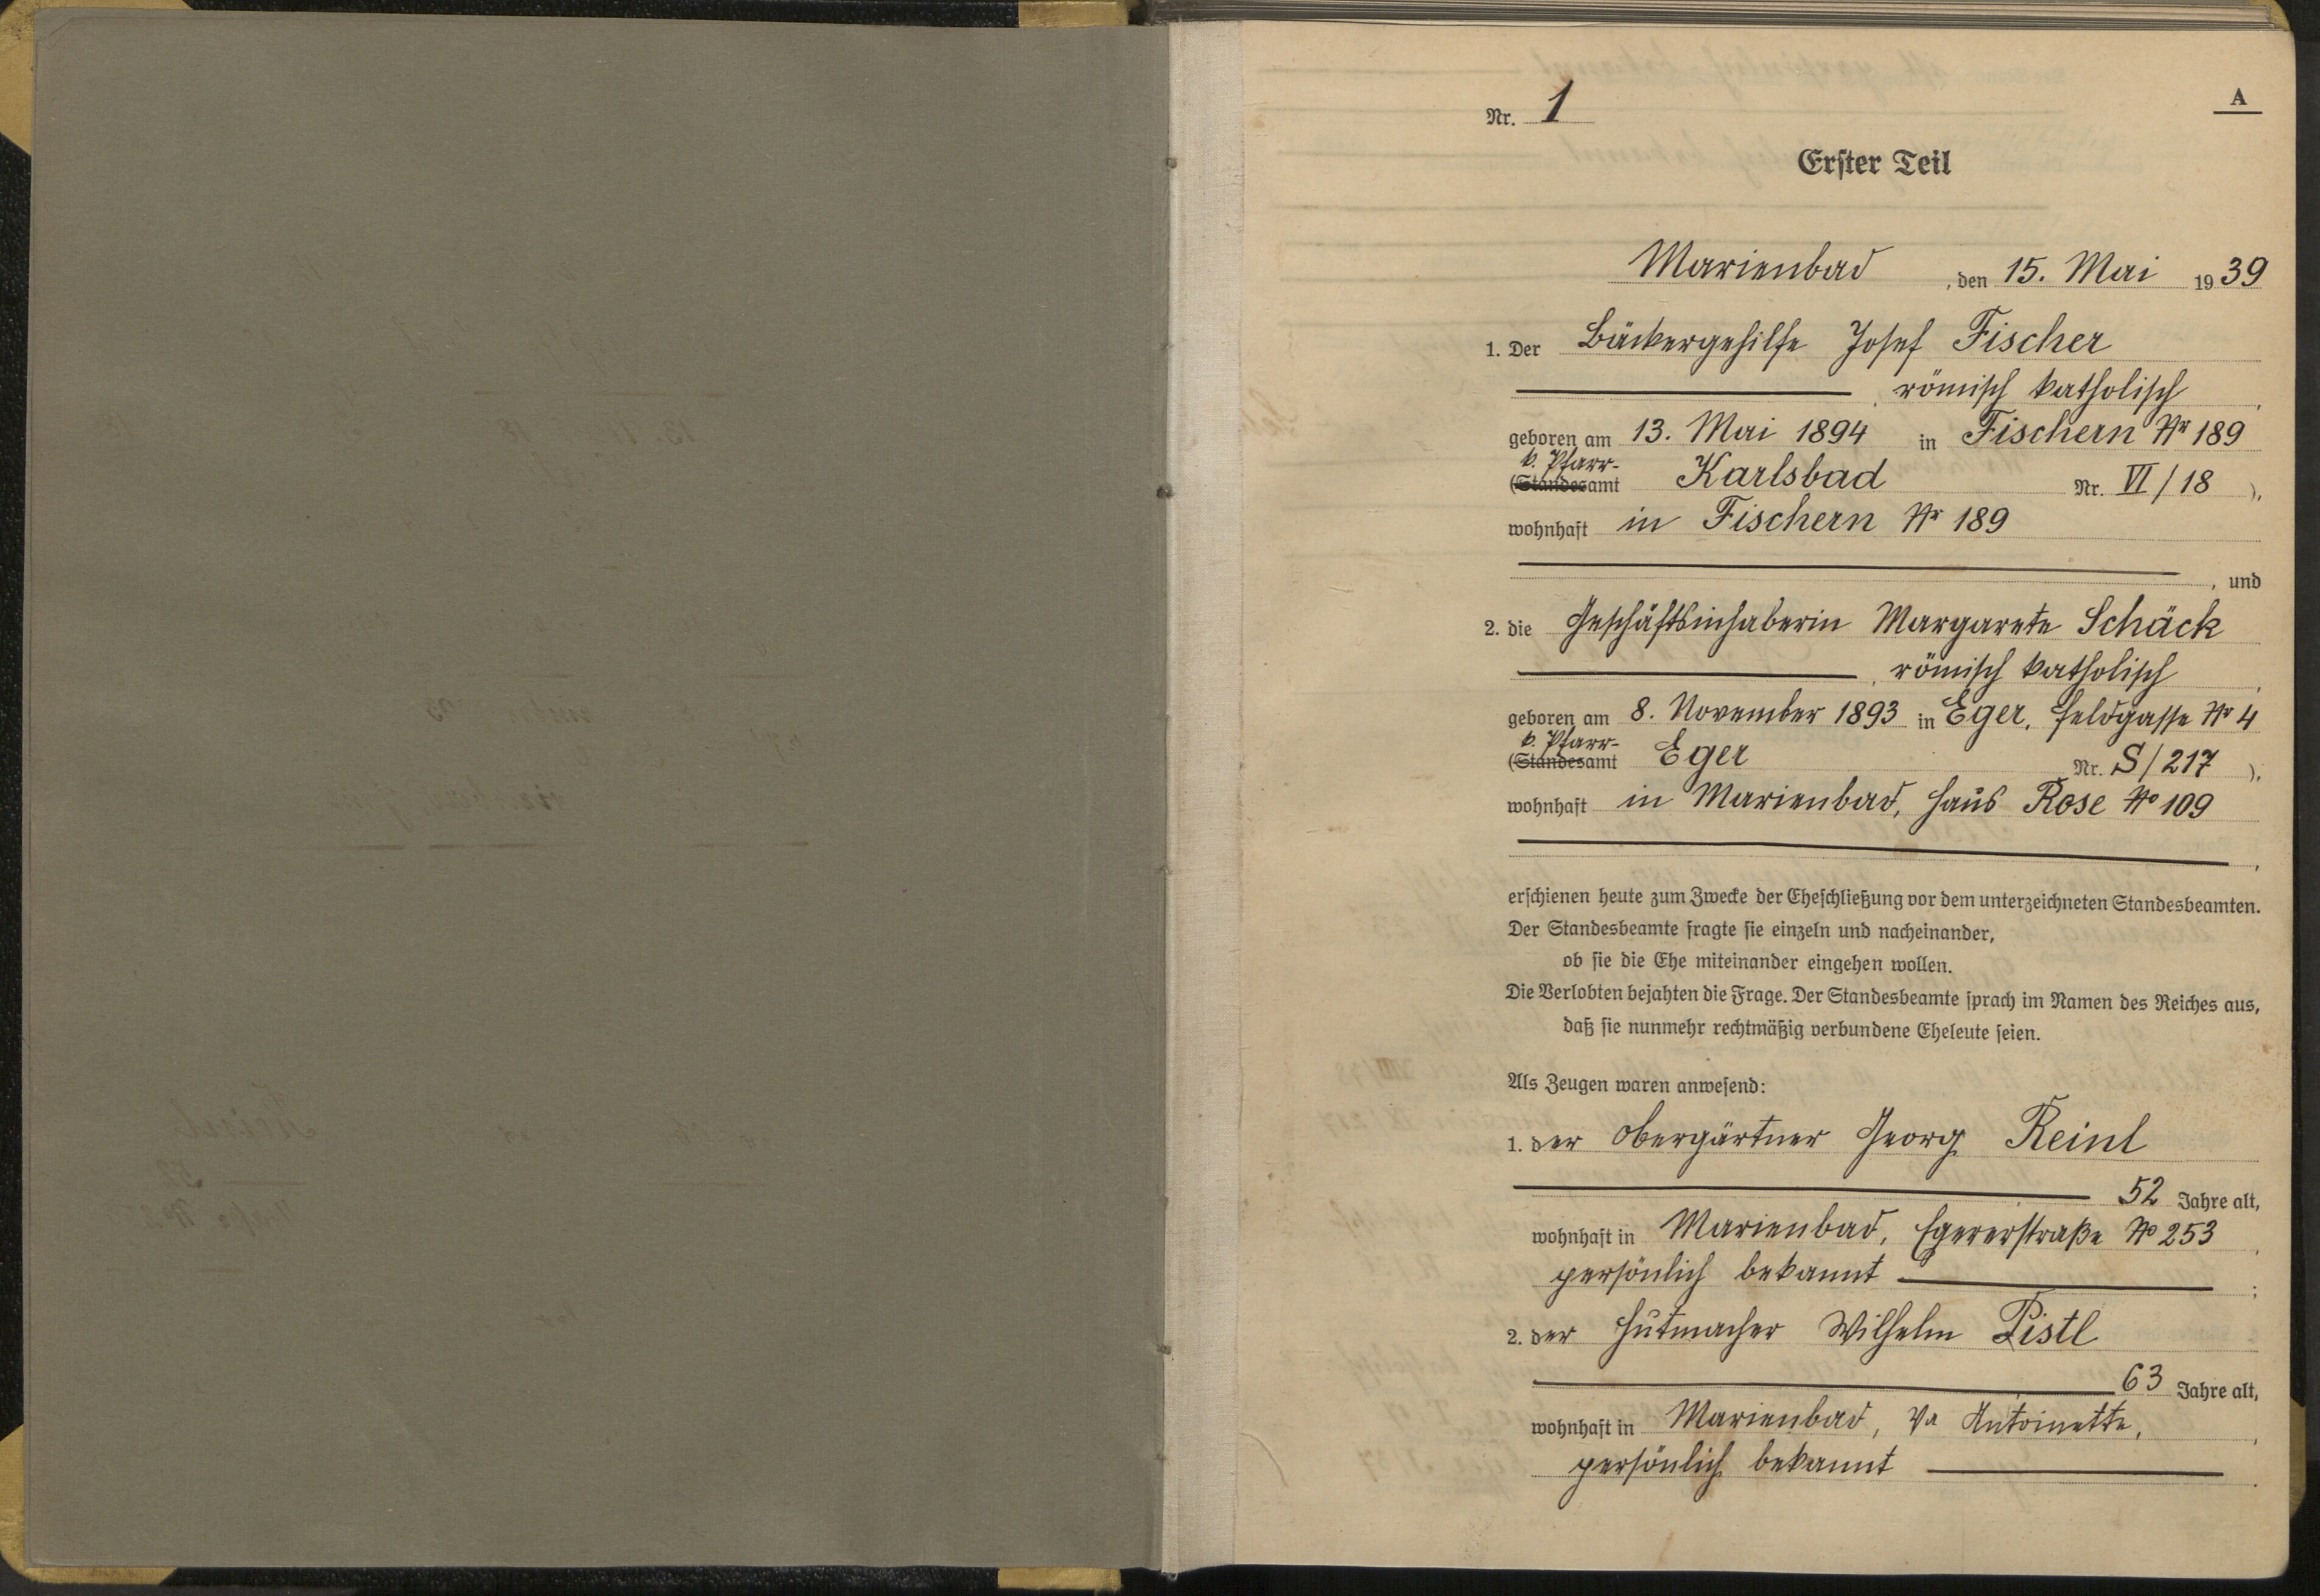 A
Nr. 1
Erster Teil
Marienbad, den 15. Mai 1939
1. Der Bäckergehilfe Josef Fischer
, römisch katholisch,
geboren am 13. Mai 1894 in Fischern Nr 189
k. Pfarr-
(Standesamt Karlsbad Nr. VI/18),
wohnhaft in Fischern Nr 189
, und
2. die Geschäftsinhaberin Margarete Schäck
, römisch katholisch,
geboren am 8. November 1893 in Eger, Feldgasse Nr 4
k. Pfarr-
(Standesamt Eger Nr. S/217),
wohnhaft in Marienbad, Haus Rose No 109
,
erschienen heute zum Zwecke der Eheschließung vor dem unterzeichneten Standesbeamten.
Der Standesbeamte fragte sie einzeln und nacheinander,
ob sie die Ehe miteinander eingehen wollen.
Die Verlobten bejahten die Frage. Der Standesbeamte sprach im Namen des Reiches aus,
daß sie nunmehr rechtmäßig verbundene Eheleute seien.
Als Zeugen waren anwesend:
1. der Obergärtner Georg Reinl
52 Jahre alt,
wohnhaft in Marienbad, Egererstraße No 253,
persönlich bekannt ;
2. der Hutmacher Wilhelm Pistl
63 Jahre alt,
wohnhaft in Marienbad, Va Antoinette,
persönlich bekannt .